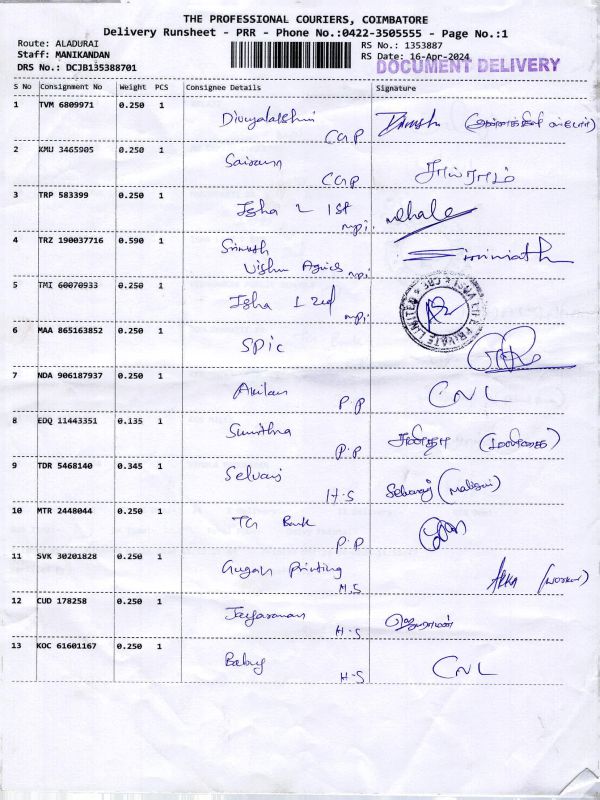 THE PROFESSIONAL COURIERS, COIMBATORE
Delivery Runsheet - PRR - Phone No.:0422-3505555 - Page No.:1
Route: ALADURAI
RS No.: 1353887
Staff: MANIKANDAN
RS Date: 16-Apr-2024
DRS No.: DCJB135388701
DOCUMENT DELIVERY
S No Consignment No Weight PCS Consignee Details Signature
1 TVM 6809971 0.250 1 Divyalakshmi
CGP
2 KMU 3465905 0.250 1 Sairam சாய்ராம்
CGP
3 TRP 583399 0.250 1 Isha 2 1st
mpi
4 TRZ 190037716 0.590 1 Srinivath
Vishnu Agncs mpi
5 TMI 60070933 0.250 1 Isha 1 2nd
mpi
PRIVATE LIMITED
6 MAA 865163852 0.250 1 SPIC
7 NDA 906187937 0.250 1 Akilan CNL
P.P
8 EDQ 11443351 0.135 1 Sumithra
P.P
9 TDR 5468140 0.345 1 Selvaraj Selvaraj
H-S
10 MTR 2448044 0.250 1 TG Bank
P.P
11 SVK 30201828 0.250 1 Gugan Printing (worker)
H.S
12 CUD 178258 0.250 1 Jayaraman ஜெயராமன்
H-S
13 KOC 61601167 0.250 1 Babuy CNL
H-S